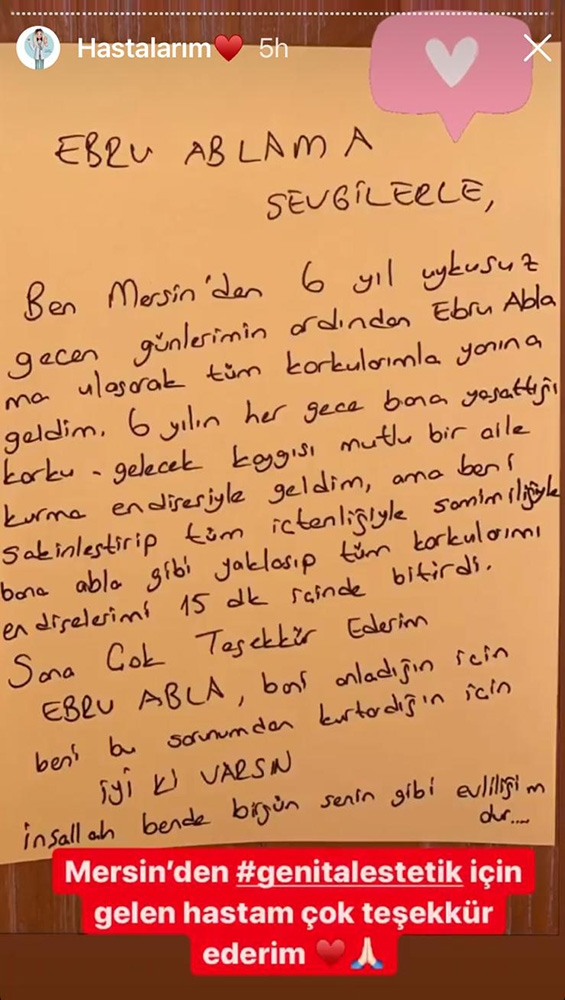 Hastalarım❤️ 5h
EBRU ABLAMA
SEVGİLERLE,
Ben Mersin'den 6 yıl uykusuz
geçen günlerimin ardından Ebru Abla
ma ulaşarak tüm korkularımla yanına
geldim. 6 yılın her gece bana yaşattığı
korku - gelecek kaygısı mutlu bir aile
kurma endişesiyle geldim, ama beni
sakinleştirip tüm içtenliğiyle samimiliğiyle
bana abla gibi yaklaşıp tüm korkularımı
endişelerimi 15 dk içinde bitirdi.
Sana Çok Teşekkür Ederim
EBRU ABLA, beni anladığın için
beni bu sorunumdan kurtardığın için
iyi ki VARSIN
inşallah bende birgün senin gibi evliliğim
dur....
Mersin'den #genitalestetik için
gelen hastam çok teşekkür
ederim ❤️🙏🏻